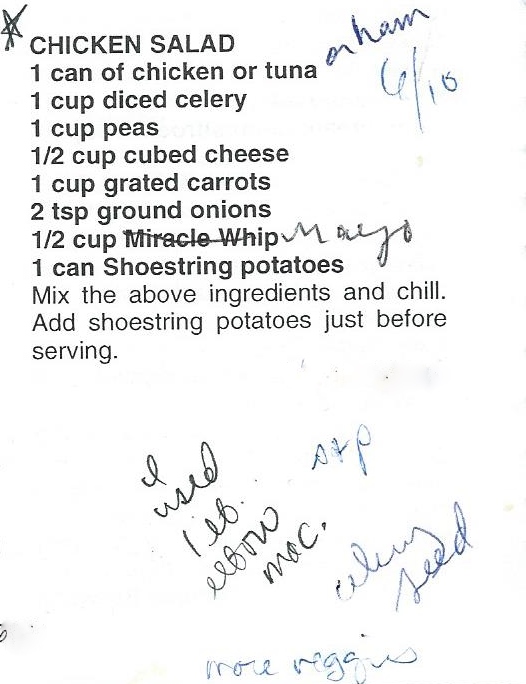 CHICKEN SALAD
1 can of chicken or tuna or ham
6/10
1 cup diced celery
1 cup peas
1/2 cup cubed cheese
1 cup grated carrots
2 tsp ground onions
1/2 cup Miracle Whip Mayo
1 can Shoestring potatoes
Mix the above ingredients and chill.
Add shoestring potatoes just before
serving.
I
used
1 lb.
elbow
mac.
s+p
celery
seed
more veggies